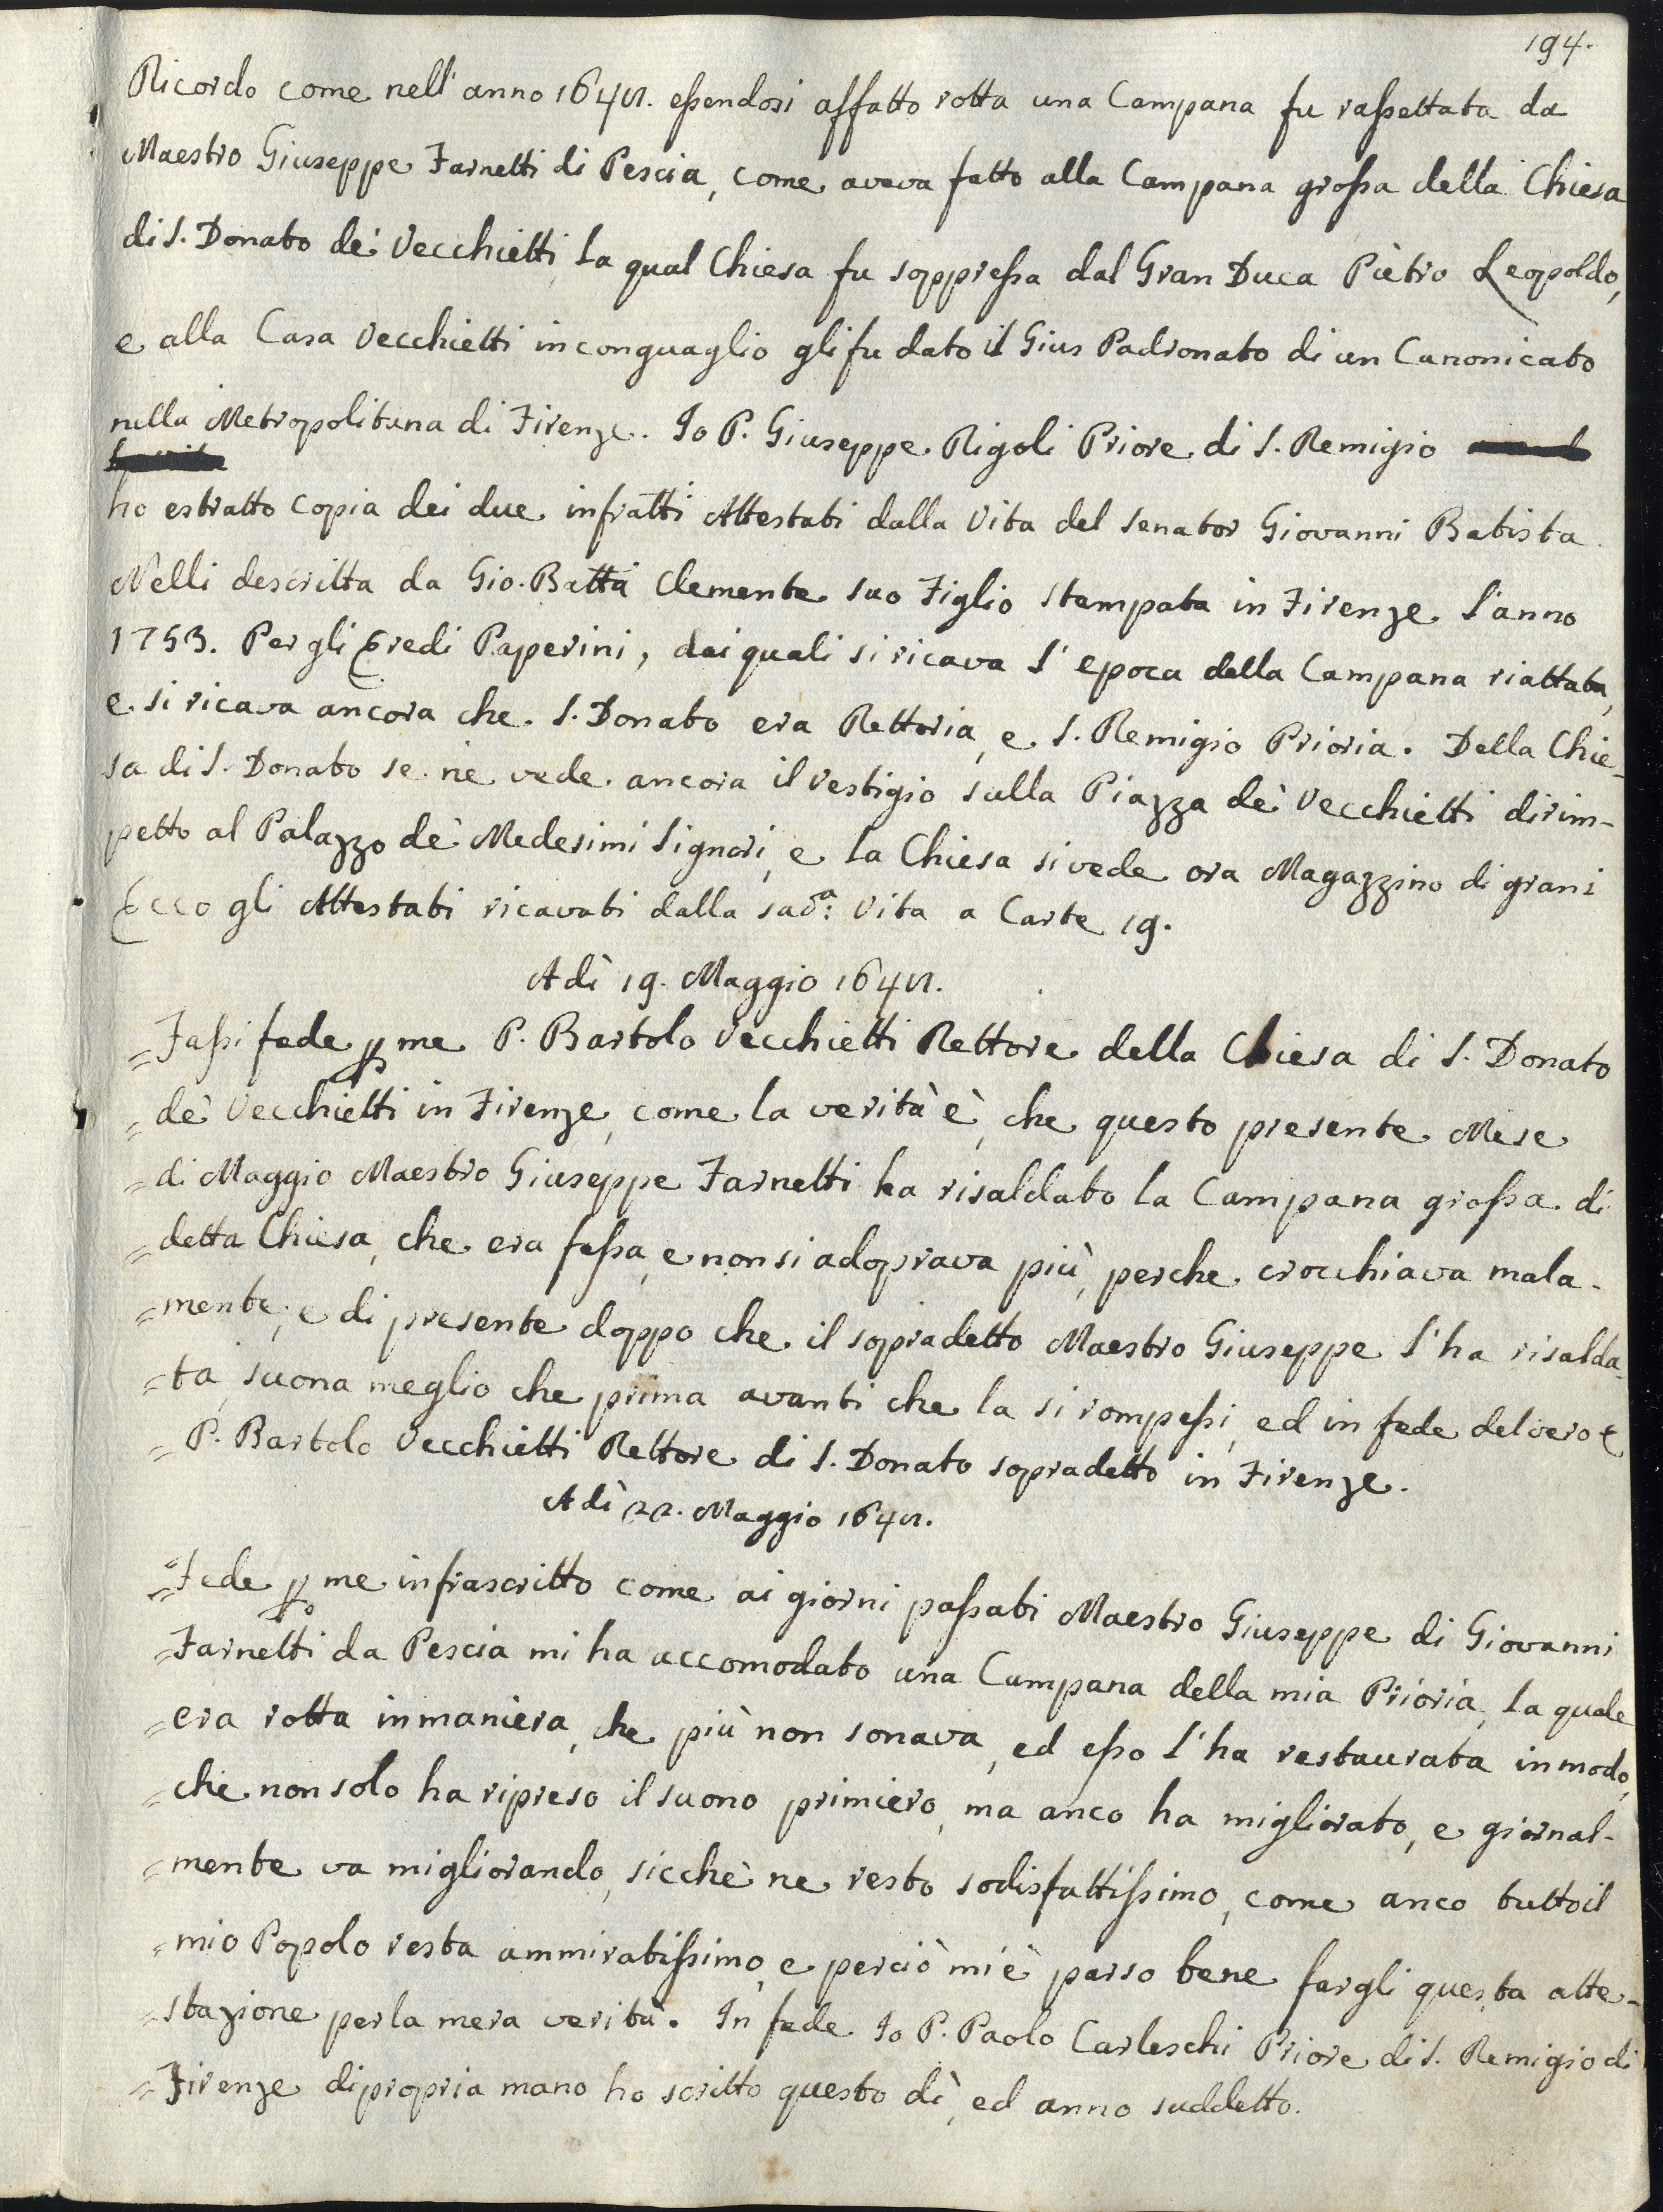 194.
Ricordo come nell' anno 1642. eſsendosi affatto rotta una Campana fu raſsettata da
Maestro Giuseppe Farnetti di Pescia, come aveva fatto alla Campana groſsa della Chiesa
di S. Donato de' Vecchietti la qual Chiesa fu soppreſsa dal Gran Duca Piètro Leopoldo,
e alla Casa Vecchietti in conguaglio gli fu dato il Gius Padronato di un Canonicato
nella Metropolitana di Firenze. Io P. Giuseppe Rigoli Priore di S. Remigio
ho estratto Copia dei due infratti Attestati dalla Vita del Senator Giovanni Batista
Nelli descritta da Gio. Batta Clemente suo Figlio Stampata in Firenze l'anno
1753. Per gli Eredi Paperini, dai quali si ricava l'epoca della Campana riattata,
e si ricava ancora che S. Donato era Rettoria, e S. Remigio Prioria. Della Chie-
sa di S. Donato se ne vede ancora il vestigio sulla Piazza de' Vecchietti dirim-
petto al Palazzo de' Medesimi Signori, e la Chiesa si vede ora Magazzino di grani
Ecco gli Attestati ricavati dalla sad.a Vita a Carte 19.
A dì 19. Maggio 1642.
= Faſsi fede p me P. Bartolo Vecchietti Rettore della Chiesa di S. Donato
= de' Vecchietti in Firenze, come la verità è, che questo presente Mese
= di Maggio Maestro Giuseppe Farnetti ha risaldato la Campana groſsa di
= detta Chiesa, che era feſsa, e non si adoprava più, perche crocchiava mala-
= mente; e di presente doppo che il sopradetto Maestro Giuseppe l'ha risalda-
= ta, suona meglio che prima avanti che la si rompeſsi, ed in fede del vero e
= P. Bartolo Vecchietti Rettore di S. Donato sopradetto in Firenze.
A dì 22. Maggio 1642.
= Fede p me infrascritto come ai giorni paſsati Maestro Giuseppe di Giovanni
= Farnetti da Pescia mi ha accomodato una Campana della mia Prioria, la quale
= era rotta in maniera, che più non sonava, ed eſso l'ha restaurata in modo,
= che non solo ha ripreso il suono primiero, ma anco ha migliorato, e giornal-
= mente va migliorando, sicchè ne resto sodisfattiſsimo, come anco tutto il
= mio Popolo resta ammiratiſsimo, e perciò m'è parso bene fargli questa atte-
= stazione per la mera verità. In fede Io P. Paolo Carleschi Priore di S. Remigio di
= Firenze di propria mano ho scritto questo dì, ed anno suddetto.